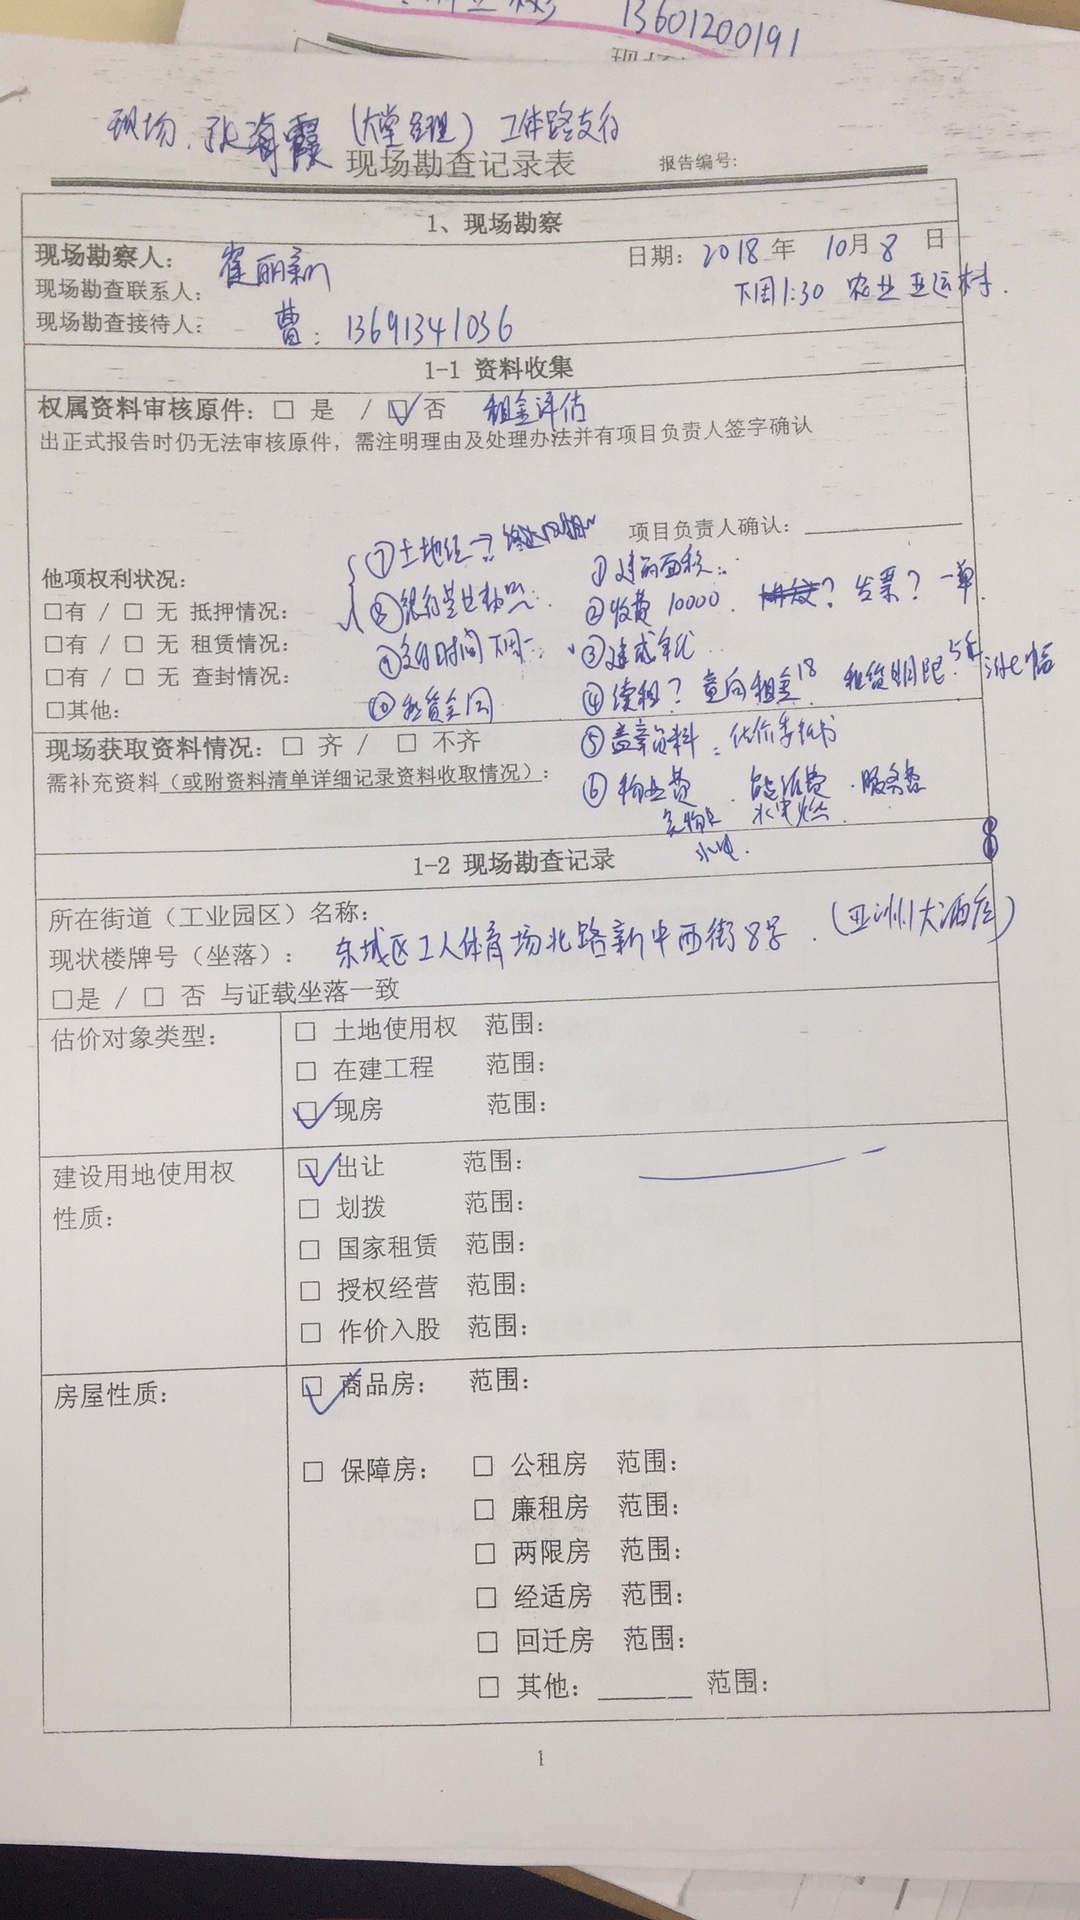 13601200191
现场
现场、张海霞（大堂经理）工体路支行
现场勘查记录表 报告编号：
1、现场勘察
现场勘察人：崔丽新 日期：2018年 10月8 日
现场勘查联系人： 下周1:30 农业亚运村.
现场勘查接待人：曹：13691341036
1-1 资料收集
权属资料审核原件：□ 是 / ☑ 否 租金评估
出正式报告时仍无法审核原件，需注明理由及处理办法并有项目负责人签字确认
项目负责人确认：
⑦土地证→? 终止日期
①建筑面积：
他项权利状况：
□有 / □ 无 抵押情况：
⑧
②收费10000. ? 发票? 一单.
□有 / □ 无 租赁情况：
⑨交付时间 下周一
③建成年代
□有 / □ 无 查封情况：
④续租？意向租金18 租赁期限.5年
□其他：
⑩租赁合同
现场获取资料情况：□ 齐 / □ 不齐
⑤盖章资料：估价委托书
需补充资料（或附资料清单详细记录资料收取情况）：
⑥物业费、能源费、服务费
水电燃
水电.
1-2 现场勘查记录
8
所在街道（工业园区）名称：
现状楼牌号（坐落）：东城区工人体育场北路新中西街8号.（亚洲大酒店）
□是 / □ 否 与证载坐落一致
估价对象类型： □ 土地使用权 范围：
□ 在建工程 范围：
☑ 现房 范围：
建设用地使用权
性质：
☑ 出让 范围：
□ 划拨 范围：
□ 国家租赁 范围：
□ 授权经营 范围：
□ 作价入股 范围：
房屋性质： ☑ 商品房： 范围：
□ 保障房： □ 公租房 范围：
□ 廉租房 范围：
□ 两限房 范围：
□ 经适房 范围：
□ 回迁房 范围：
□ 其他：______ 范围：
1